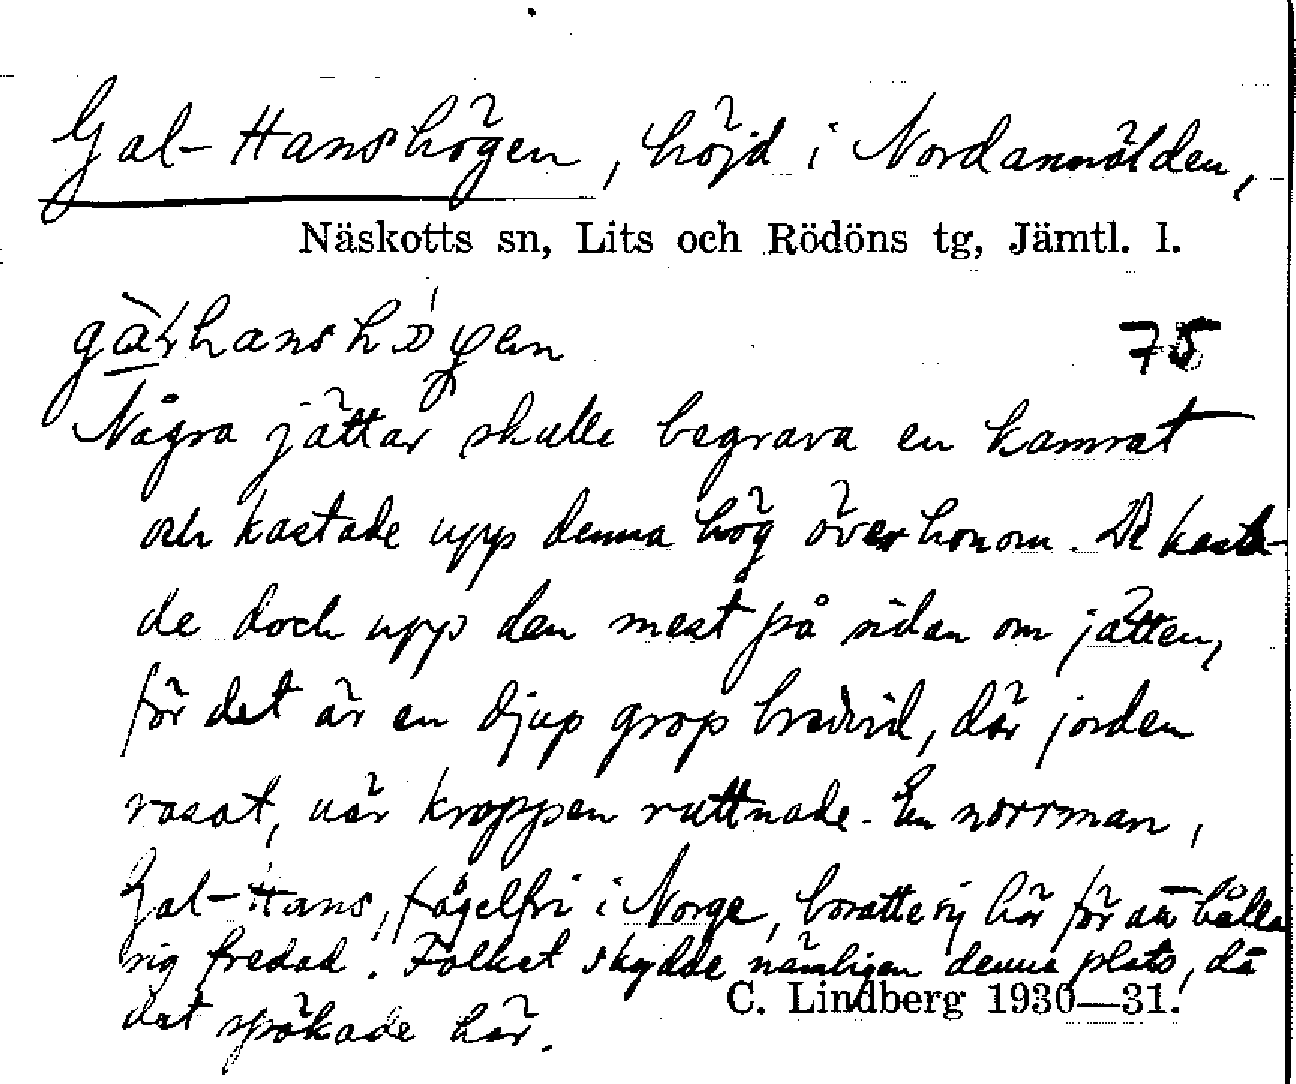 Gal-Hanshögen, höjd i Nordannälden,
Näskotts sn, Lits och Rödöns tg, Jämtl. l.
75
Några jättar skulle begrava en kamrat
och kastade upp denna hög över honom. De kasta-
de doch upp den mest på sidan om jätten,
för det är en djup grop bredvid, där jorden
rasat, när kroppen ruttnade. En norrman,
Gal-Hans, fågelfri i Norge, bosatte sig här för att hålla
sig fredad. Folket skydde nämligen denna plats, då
C. Lindberg 1930—31.
det spökade här.